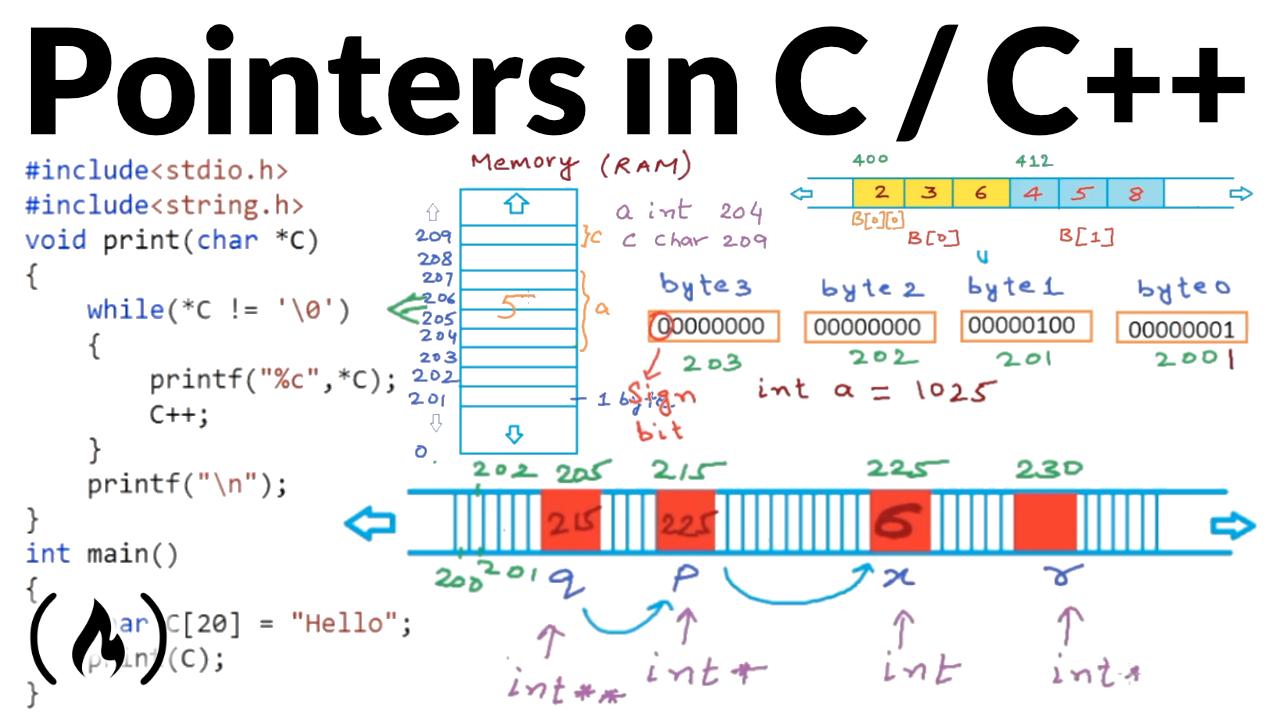 Pointers in C / C++
#include<stdio.h>
#include<string.h>
void print(char *C)
{
while(*C != '\0')
{
printf("%c",*C);
C++;
}
printf("\n");
}
int main()
{
ar C[20] = "Hello";
print(C);
}
Memory (RAM)
209
208
207
206
205
204
203
202
201
0
5
}c
}a
1 byte
a int 204
c char 209
400 412
2 3 6 4 5 8
B[0][0]
B[0] B[1]
byte3 byte2 byte1 byte0
00000000 00000000 00000100 00000001
203 202 201 2001
sign
bit
int a = 1025
202 205 215 225 230
215 225 6
200 201 q p x r
int** int* int int*